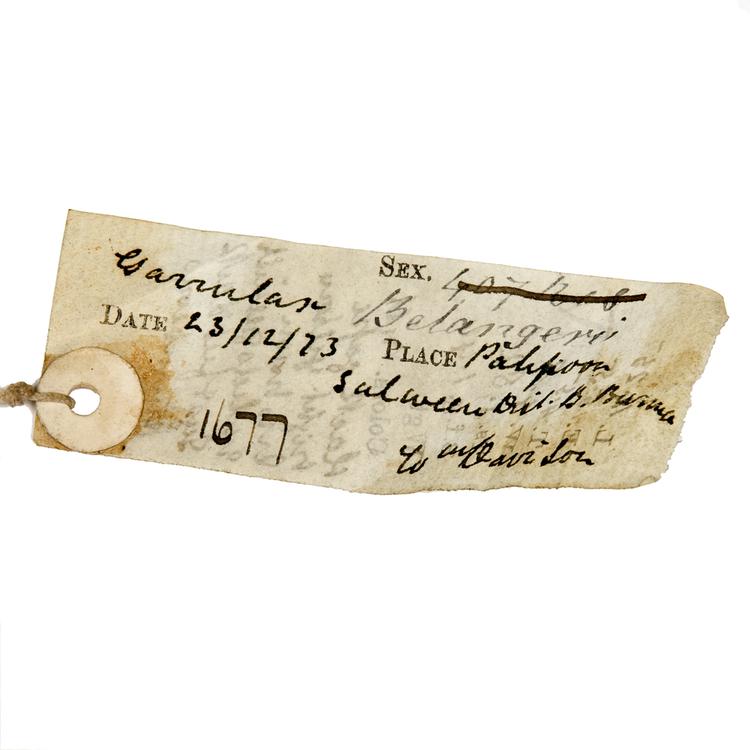 SEX.
Garrulax Belangeri
DATE 23/12/73 PLACE Pahpoon
Salween Dist. B. Burma
1677
Wm Davison